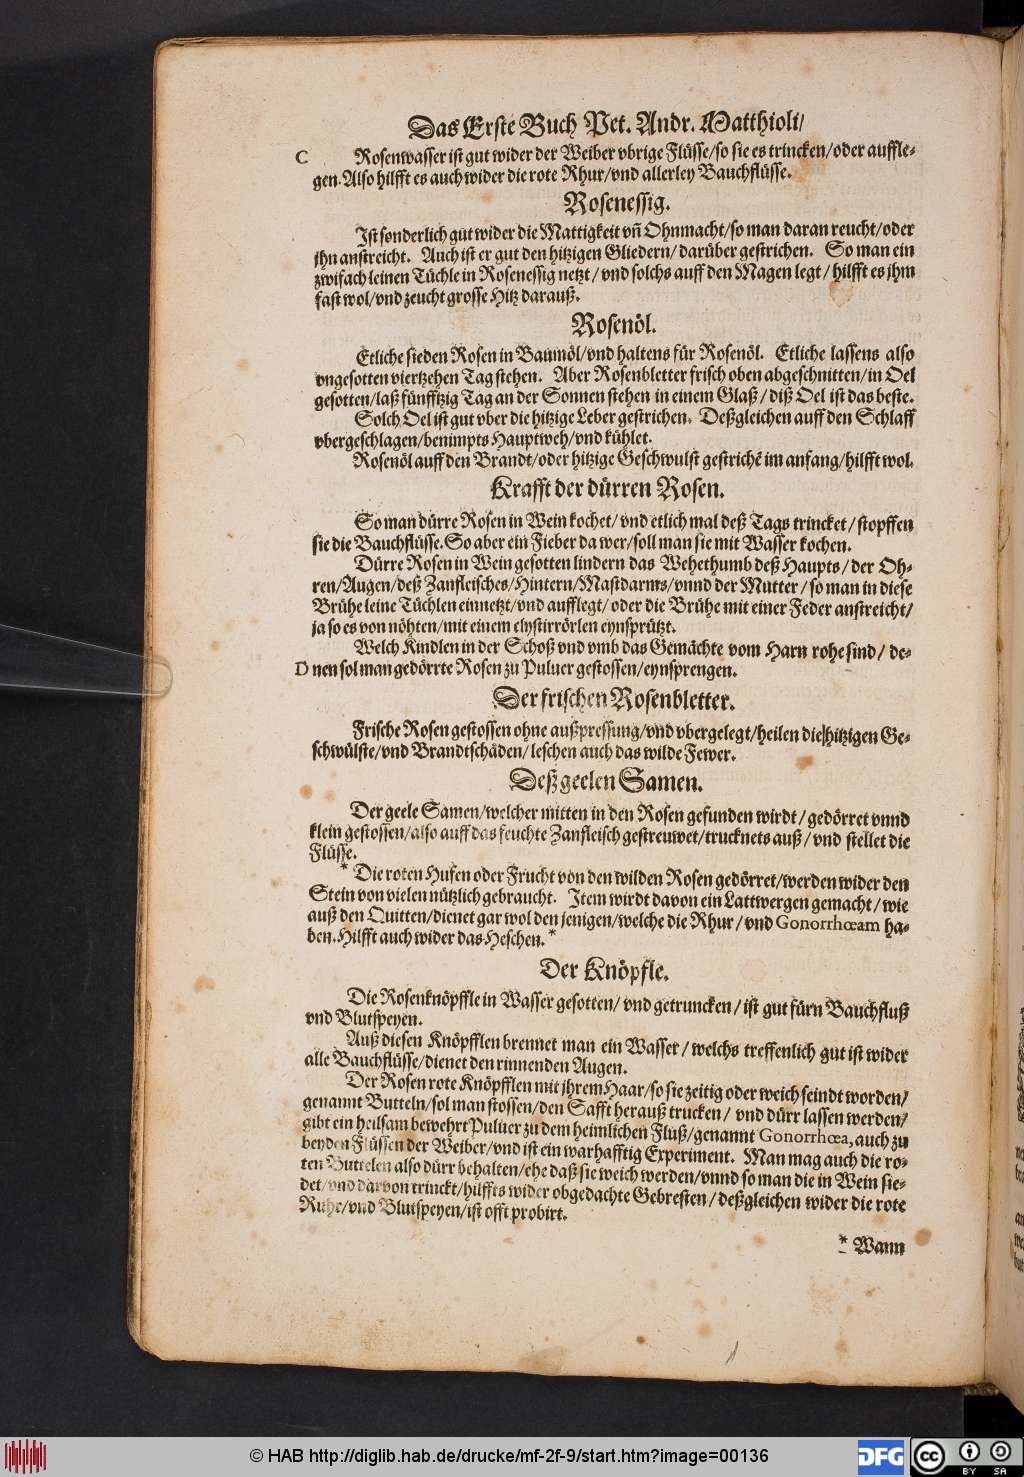 Das Erste Buch Pet. Andr. Matthioli/
C Rosenwasser ist gut wider der Weiber vbrige Flüsse/so sie es trincken/oder auffle-
gen. Also hilfft es auch wider die rote Rhur/vnd allerley Bauchflüsse.
Rosenessig.
Ist sonderlich gut wider die Mattigkeit vñ Ohnmacht/so man daran reucht/oder
jhn anstreicht. Auch ist er gut den hitzigen Gliedern/darüber gestrichen. So man ein
zwifach leinen Tüchle in Rosenessig netzt/vnd solchs auff den Magen legt/hilfft es jhm
fast wol/vnd zeucht grosse Hitz darauß.
Rosenöl.
Etliche sieden Rosen in Baumöl/vnd haltens für Rosenöl. Etliche lassens also
vngesotten viertzehen Tag stehen. Aber Rosenbletter frisch oben abgeschnitten/in Oel
gesotten/laß fünfftzig Tag an der Sonnen stehen in einem Glaß/diß Oel ist das beste.
Solch Oel ist gut vber die hitzige Leber gestrichen. Deßgleichen auff den Schlaff
vbergeschlagen/benimpts Hauptweh/vnd kühlet.
Rosenöl auff den Brandt/oder hitzige Geschwulst gestrichẽ im anfang/hilfft wol.
Krafft der dürren Rosen.
So man dürre Rosen in Wein kochet/vnd etlich mal deß Tags trincket/stopffen
sie die Bauchflüsse. So aber ein Fieber da wer/soll man sie mit Wasser kochen.
Dürre Rosen in Wein gesotten lindern das Wehethumb deß Haupts/der Oh-
ren/Augen/deß Zanfleisches/Hintern/Mastdarms/vnnd der Mutter/so man in diese
Brühe leine Tüchlen einnetzt/vnd aufflegt/oder die Brühe mit einer Feder anstreicht/
ja so es von nöhten/mit einem clystirrörlen eynsprützt.
Welch Kindlen in der Schoß vnd vmb das Gemächte vom Harn rohe sind/de-
D nen sol man gedörrte Rosen zu Puluer gestossen/eynsprengen.
Der frischen Rosenbletter.
Frische Rosen gestossen ohne außpressung/vnd vbergelegt/heilen die hitzigen Ge-
schwülste/vnd Brandtschäden/leschen auch das wilde Fewer.
Deß geelen Samen.
Der geele Samen/welcher mitten in den Rosen gefunden wirdt/gedörret vnnd
klein gestossen/also auff das feuchte Zanfleisch gestreuwet/trucknets auß/vnd stellet die
Flüsse.
* Die roten Hufen oder Frucht von den wilden Rosen gedörret/werden wider den
Stein von vielen nützlich gebraucht. Item wirdt davon ein Lattwergen gemacht/wie
auß den Quitten/dienet gar wol den jenigen/welche die Rhur/vnd Gonorrhœam ha-
ben. Hilfft auch wider das Heschen. *
Der Knöpfle.
Die Rosenknöpffle in Wasser gesotten/vnd getruncken/ist gut fürn Bauchfluß
vnd Blutspeyen.
Auß diesen Knöpfflen brennet man ein Wasser/welchs treffenlich gut ist wider
alle Bauchflüsse/dienet den rinnenden Augen.
Der Rosen rote Knöpfflen mit jhrem Haar/so sie zeitig oder weich seindt worden/
genannt Butteln/sol man stossen/den Safft herauß trucken/vnd dürr lassen werden/
gibt ein heilsam bewehrt Puluer zu dem heimlichen Fluß/genannt Gonorrhœa, auch zu
beyden Flüssen der Weiber/vnd ist ein warhafftig Experiment. Man mag auch die ro-
ten Buttelen also dürr behalten/ehe daß sie weich werden/vnnd so man die in Wein sie-
det/vnd darvon trinckt/hilffts wider obgedachte Gebresten/deßgleichen wider die rote
Ruhr/vnd Blutspeyen/ist offt probirt.
* Wann
© HAB http://diglib.hab.de/drucke/mf-2f-9/start.htm?image=00136
DFG
cc BY SA